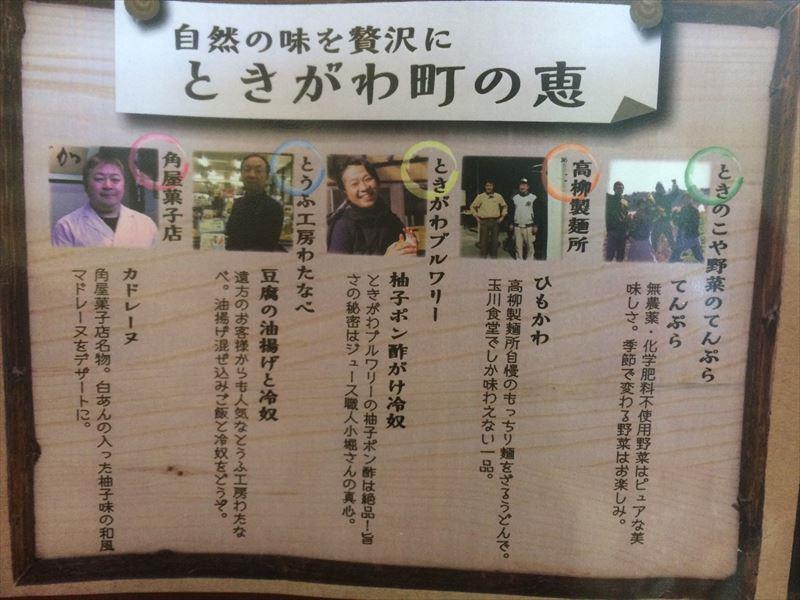 自然の味を贅沢に
ときがわ町の恵
ときのこや野菜のてんぷら
てんぷら
無農薬・化学肥料不使用野菜はピュアな美
味しさ。季節で変わる野菜はお楽しみ。
高柳製麺所
ひもかわ
高柳製麺所自慢のもっちり麺をざるうどんで。
玉川食堂でしか味わえない一品。
ときがわブルワリー
柚子ポン酢がけ冷奴
ときがわブルワリーの柚子ポン酢は絶品！旨
さの秘密はジュース職人小堀さんの真心。
とうふ工房わたなべ
豆腐の油揚げと冷奴
遠方のお客様からも人気なとうふ工房わたな
べ。油揚げ混ぜ込みご飯と冷奴をどうぞ。
角屋菓子店
カドレーヌ
角屋菓子店名物。白あんの入った柚子味の和風
マドレーヌをデザートに。